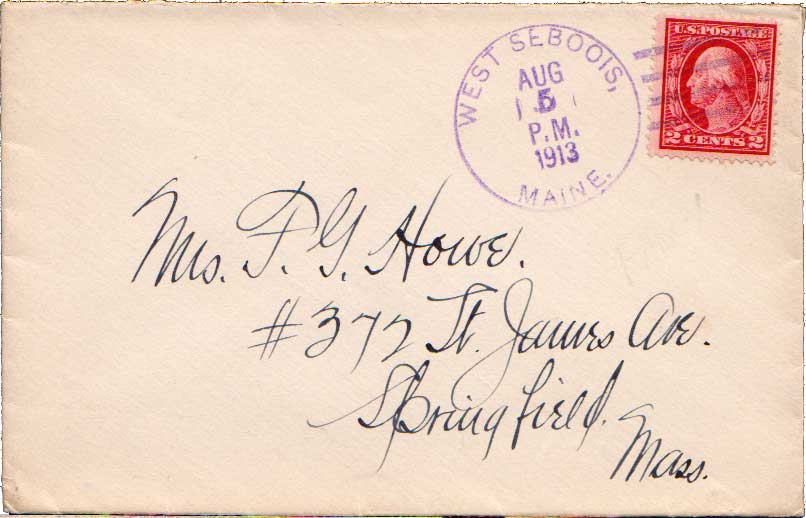 WEST SEBOOIS,
AUG
5
P.M.
1913
MAINE.
U.S. POSTAGE
2 CENTS 2
Mrs. F. G. Howe.
#372 St. James Ave.
Springfield.
Mass.